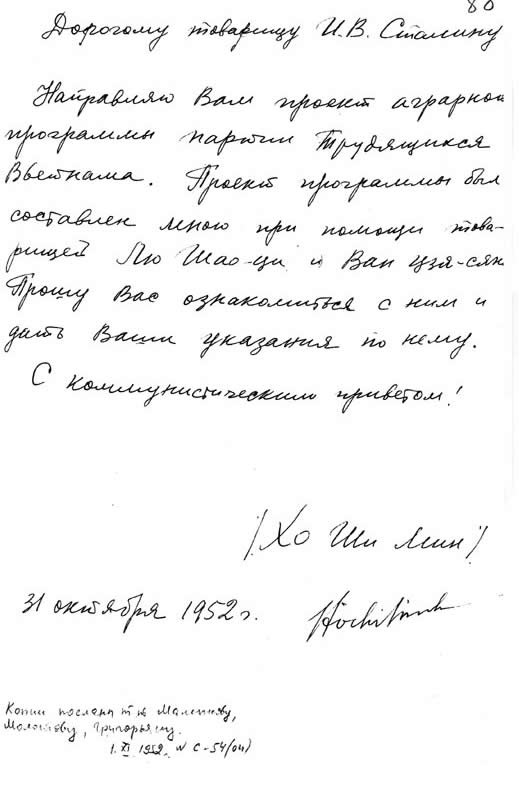 80
Дорогому товарищу И.В. Сталину
Направляю Вам проект аграрной
программы партии Трудящихся
Вьетнама. Проект программы был
составлен мною при помощи това-
рищей Лю Шао-ци и Ван Цзя-сян
Прошу Вас ознакомиться с ним и
дать Ваши указания по нему.
С коммунистическим приветом!
/Хо Ши Мин/
31 октября 1952 г. Hochiminh
Копии посланы т.т. Маленкову,
Молотову, Григорьяну.
1.XI 1952. N С-54(оп)